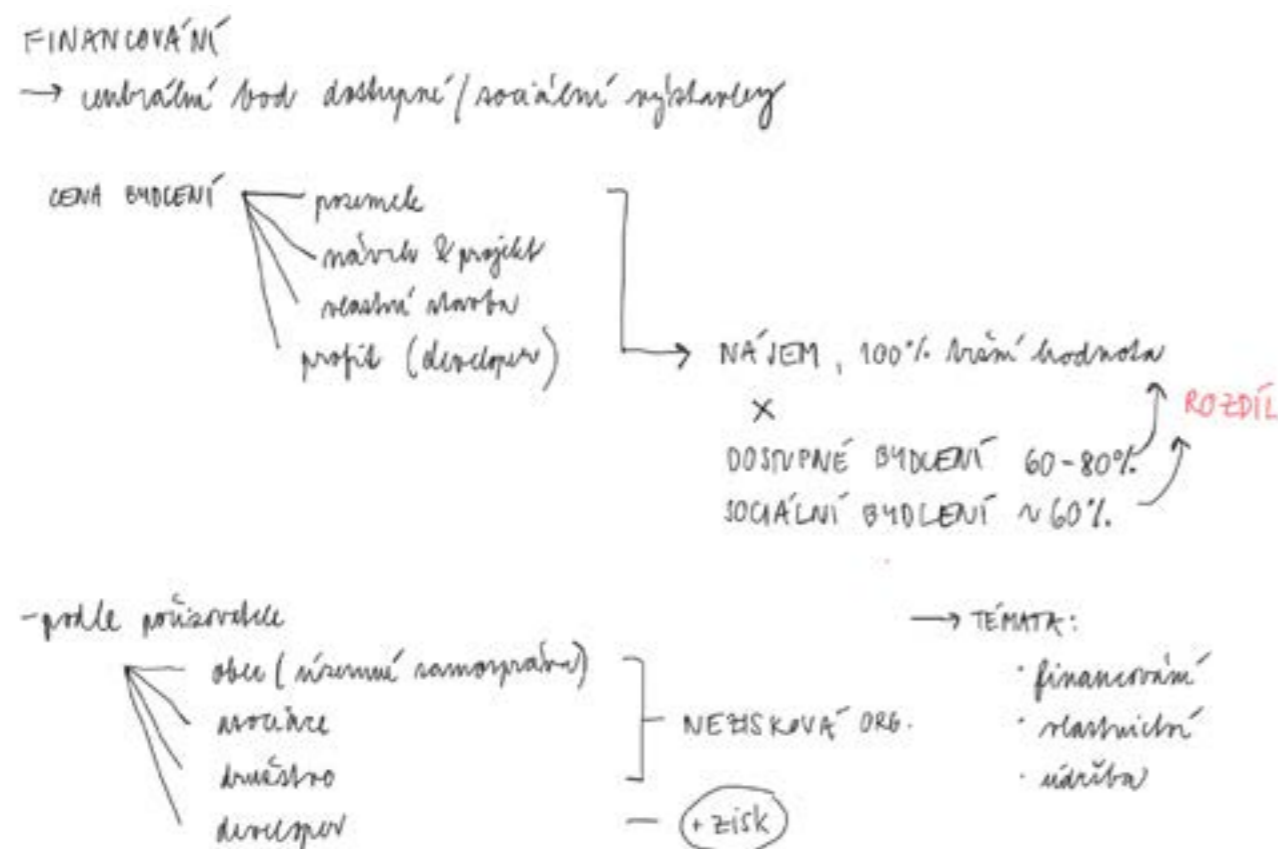 FINANCOVÁNÍ
→ centrální bod dostupné/sociální výstavby
CENA BYDLENÍ
pozemek
návrh & projekt
vlastní stavba
profit (developer)
→ NÁJEM, 100% tržní hodnota
×
ROZDÍL
DOSTUPNÉ BYDLENÍ 60-80%
SOCIÁLNÍ BYDLENÍ ~60%
- podle pořizovatele
obec (územní samospráva)
asociace
družstvo
developer
NEZISKOVÁ ORG.
+ zisk
→ TÉMATA:
· financování
· vlastnictví
· údržba